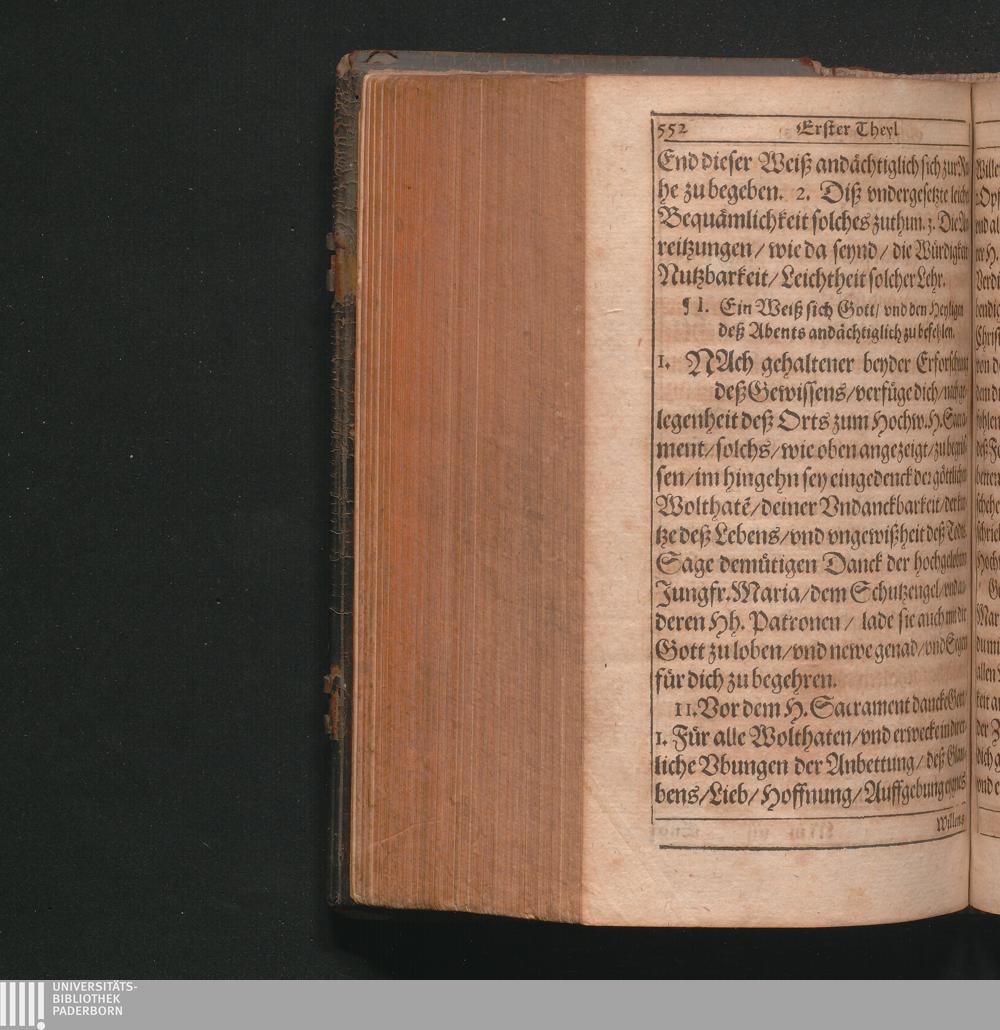 552 Erster Theyl
End dieser Weiß andächtiglich sich zur Ru
he zu begeben. 2. Diß vndergesetzte leichte
Bequämlichkeit solches zuthun. 3. Die An
reitzungen / wie da seynd / die Würdigkeit
Nutzbarkeit / Leichtheit solcher Lehr.
¶ I. Ein Weiß sich Gott / vnd den Heyligen
deß Abents andächtiglich zu befehlen.
I. NAch gehaltener beyder Erforschung
deß Gewissens / verfüge dich / nach ge-
legenheit deß Orts zum Hochw. H. Sacra-
ment / solchs / wie oben angezeigt / zu begrüs-
sen / im hingehn sey eingedenck der göttlichen
Wolthatē / deiner Vndanckbarkeit / der kur-
tze deß Lebens / vnd vngewißheit deß Todts
Sage demütigen Danck der hochgelobten
Jungfr. Maria / dem Schutzengel / vnd an-
deren Hh. Patronen / lade sie auch mit dir
Gott zu loben / vnd newe genad / vnd Segen
für dich zu begehren.
II. Vor dem H. Sacrament dancke Gott /
1. Für alle Wolthaten / vnd erwecke
liche Vbungen der Anbettung / deß Glau-
bens / Lieb / Hoffnung / Auffgebung eignes
Willens
UNIVERSITÄTS-
BIBLIOTHEK
PADERBORN